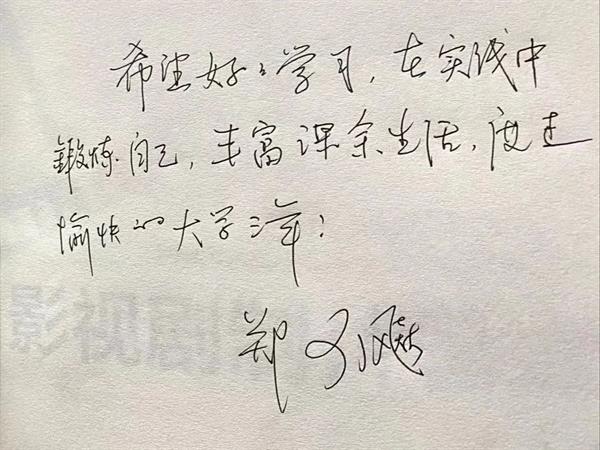 希望好好学习，在实践中
锻炼自己，丰富课余生活，度过
愉快的大学三年！
郑
影视剧